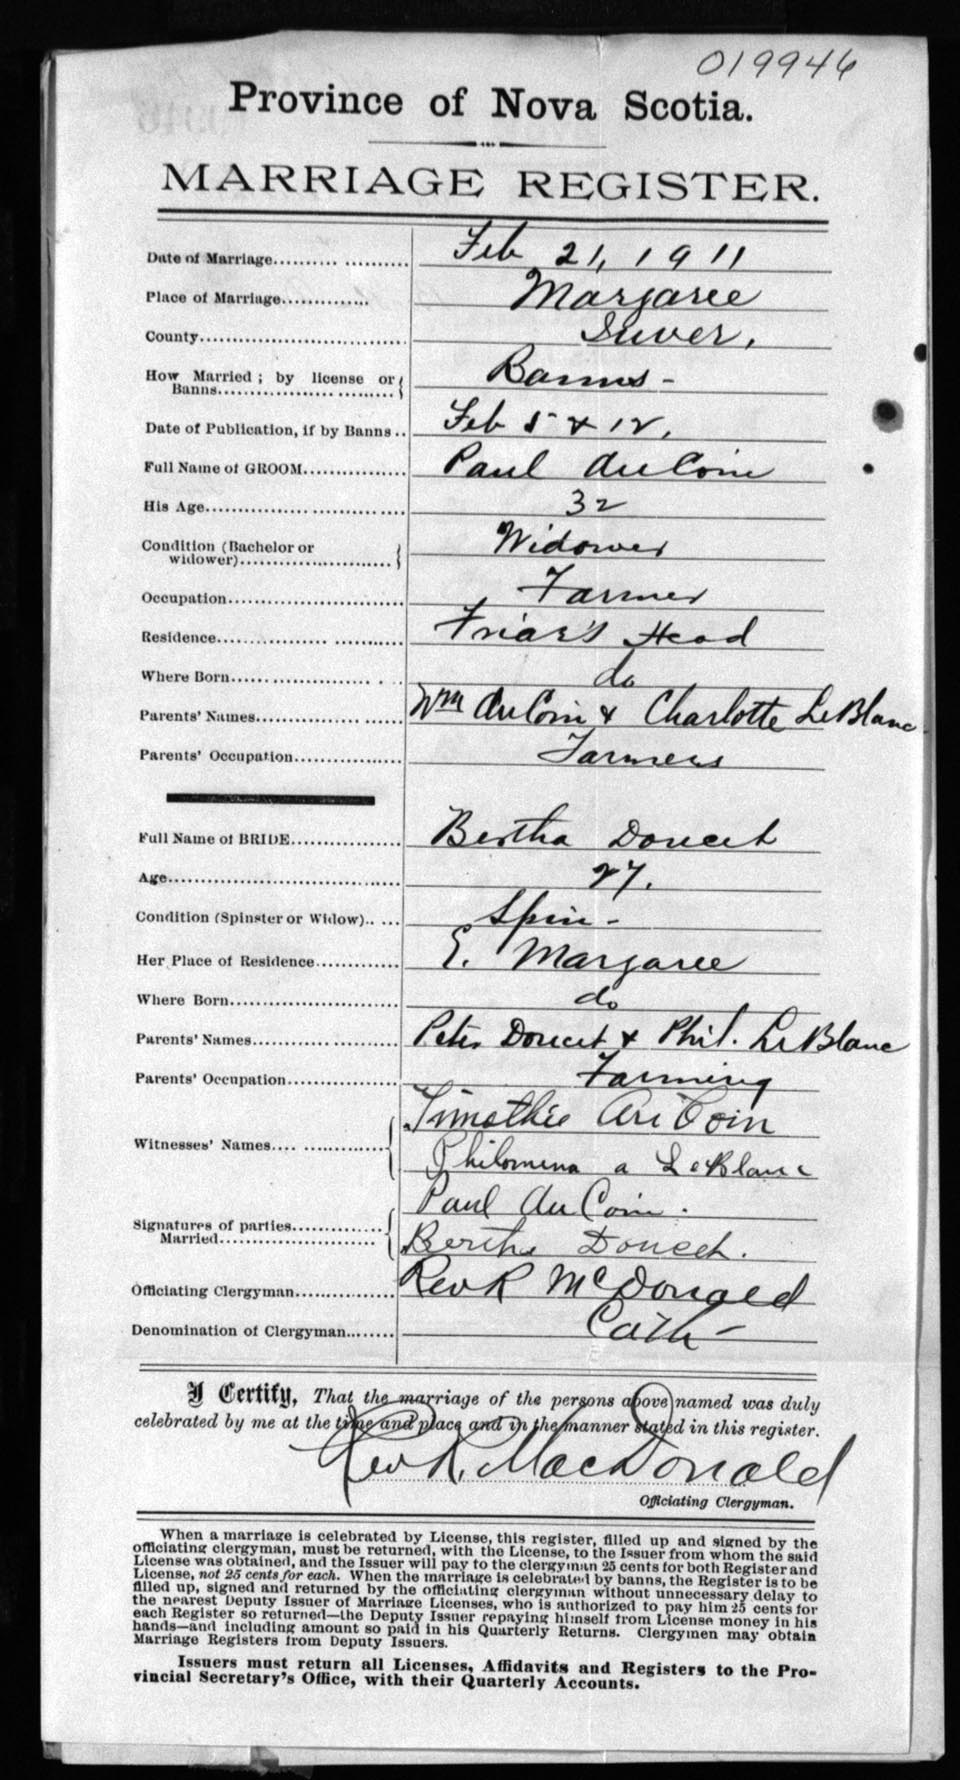 019946
Province of Nova Scotia.
MARRIAGE REGISTER.
Date of Marriage.......... .......... Feb 21, 1911
Place of Marriage............. Margaree
County................................ Inver,
How Married; by license or
Banns.................... ......... Banns -
Date of Publication, if by Banns.. Feb 5 & 12,
Full Name of GROOM................ Paul AuCoin
His Age.................. .......... .... 32
Condition (Bachelor or
widower)........................... Widower
Occupation............................ Farmer
Residence................. .......... Friar's Head
Where Born.................... . . do
Parents' Names................. ...... Wm AuCoin & Charlotte LeBlanc
Parents' Occupation................. Farmers
Full Name of BRIDE................. Bertha Doucet
Age..................................... 27.
Condition (Spinster or Widow).. .... Spin -
Her Place of Residence............. E. Margaree
Where Born........................... do
Parents' Names.............. ........ Peter Doucet & Phil. LeBlanc
Parents' Occupation................. Farming
Timothie AuCoin
Witnesses' Names.... .............
Philomena a LeBlanc
Paul AuCoin.
Signatures of parties..............
Married.........................
Bertha Doucet.
Officiating Clergyman............... Rev R McDonald
Denomination of Clergyman........ Cath -
I Certify, That the marriage of the persons above named was duly
celebrated by me at the time and place and in the manner stated in this register.
Rev R. MacDonald
Officiating Clergyman.
When a marriage is celebrated by License, this register, filled up and signed by the
officiating clergyman, must be returned, with the License, to the Issuer from whom the said
License was obtained, and the Issuer will pay to the clergyman 25 cents for both Register and
License, not 25 cents for each. When the marriage is celebrated by banns, the Register is to be
filled up, signed and returned by the officiating clergyman without unnecessary delay to
the nearest Deputy Issuer of Marriage Licenses, who is authorized to pay him 25 cents for
each Register so returned—the Deputy Issuer repaying himself from License money in his
hands—and including amount so paid in his Quarterly Returns. Clergymen may obtain
Marriage Registers from Deputy Issuers.
Issuers must return all Licenses, Affidavits and Registers to the Pro-
vincial Secretary's Office, with their Quarterly Accounts.